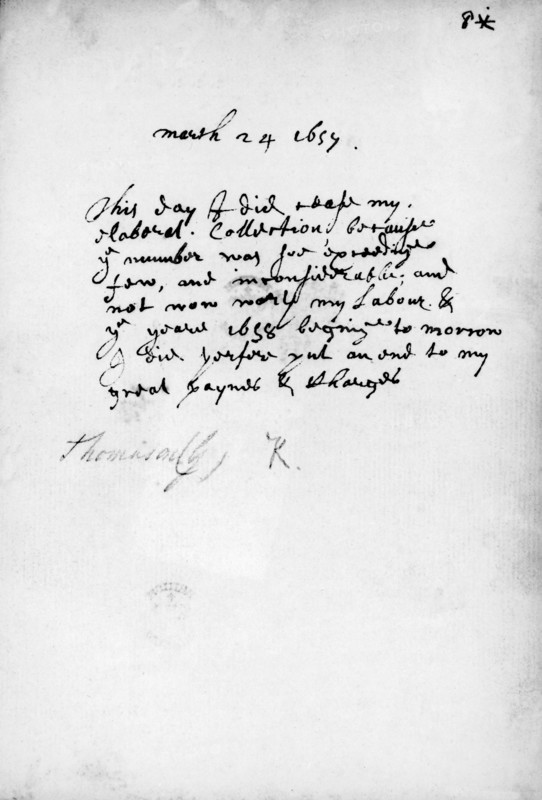 8*
march 24 1657.
This day I did cease my
elaborat. Collection, because
ye number was soe exceedinge
few, and inconsiderable, and
not now worth my Labour. &
ye yeare 1658 begins to morrow
I did perfore put an end to my
great paynes & Charges
Thomason (G) K.